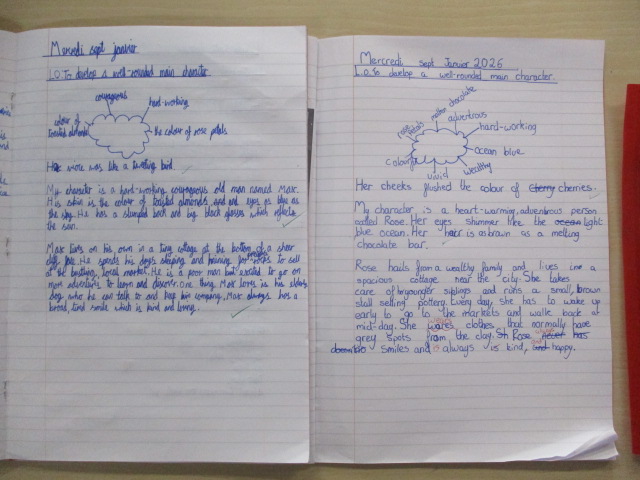 Mercredi sept janvier
LO To develop a well-rounded main character
courageous
hard-working
colour of toasted almonds
the colour of rose petals
voice was like a tweeting bird.
My character is a hard-working courageous old man named Max.
His skin is the colour of toasted almonds and eyes as blue as
the sky. He has a slumped back and big black glasses which reflects
the sun.
Max lives on his own in a tiny cottage at the bottom of a sheer
cliff face. He spends his days sleeping and
at the bustling local market. He is a poor man but excited to go on
more adventures to learn and discover. One thing Max loves is his elderly
dog who he can talk to and keep him company. Max always has a
broad, kind smile which is kind and loving.
Mercredi sept Janvier 2026
L.O. To develop a well-rounded main character.
rose petals
molten chocolate
adventrous
hard-working
ocean blue
wealthy
vivid
colour
Her cheeks flushed the colour of cherry cherries.
My character is a heart-warming, adventrous person
called Rose. Her eyes shimmer like the ocean light
blue ocean. Her hair is as brown as a melting
chocolate bar.
Rose hails from a wealthy family and lives in a
spacious cottage near the city. She takes
care of her younger siblings and runs a small, brown
stall selling pottery. Every day, she has to wake up
early to go to the markets and walk back at
mid-day. She wares clothes that normally have
grey spots from the clay. Sh Rose never has
smiles and always is kind, and happy.